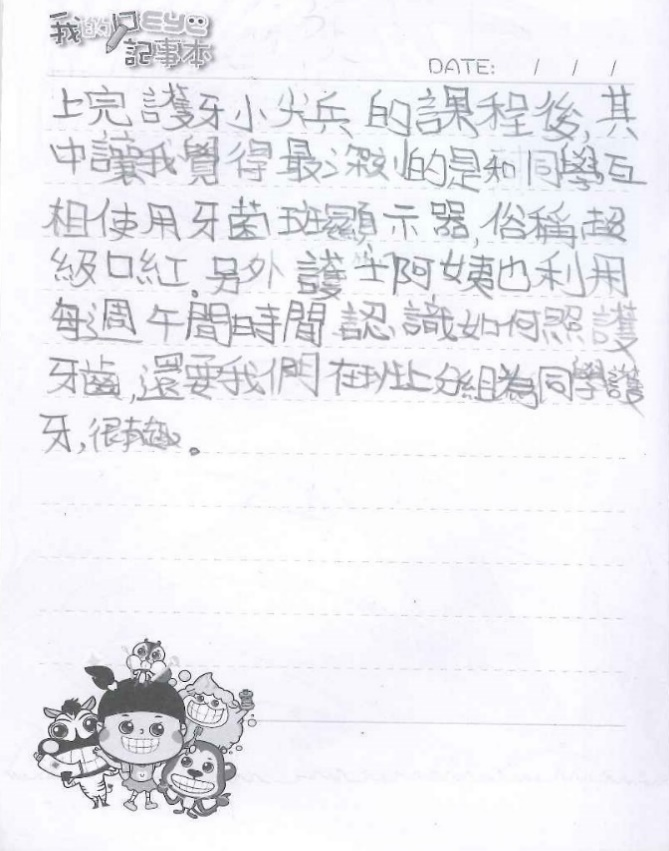 我的口EYE
記事本
DATE: / / /
上完護牙小尖兵的課程後,其
中讓我覺得最深刻的是和同學互
相使用牙菌斑顯示器,俗稱超
級口紅.另外護士阿姨也利用
每週午間時間認識如何照護
牙齒,還要我們在班上分組為同學護
牙,很有趣。